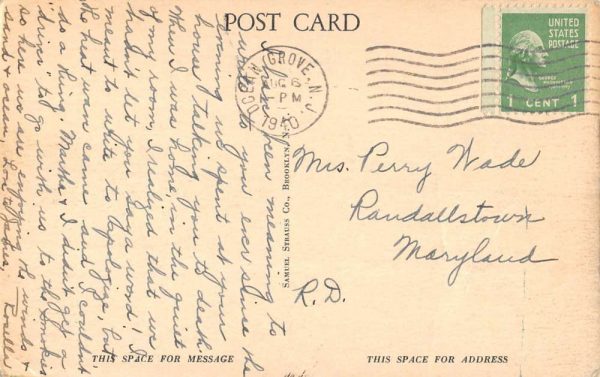 POST CARD
UNITED
STATES
POSTAGE
1 CENT 1
OCEAN GROVE. N.J.
AUG 6
1 PM
1940
I have been meaning to
write to you ever since the
evening we spent at your
house talking you to death.
When I was home, in the quiet
of my room, I realized that we
hadn't let you say a word! I
meant to write to apologize, but
the heat wave came and I couldn't
do a thing. Martha & I didn't get a
"driver" to go with us to the Smokies
so here we are enjoying the winds &
sand & ocean. Love to
Rosella
SAMUEL STRAUSS CO., BROOKLYN, N.Y.
Mrs. Perry Wade
Randallstown
Maryland
R.D.
THIS SPACE FOR MESSAGE
THIS SPACE FOR ADDRESS